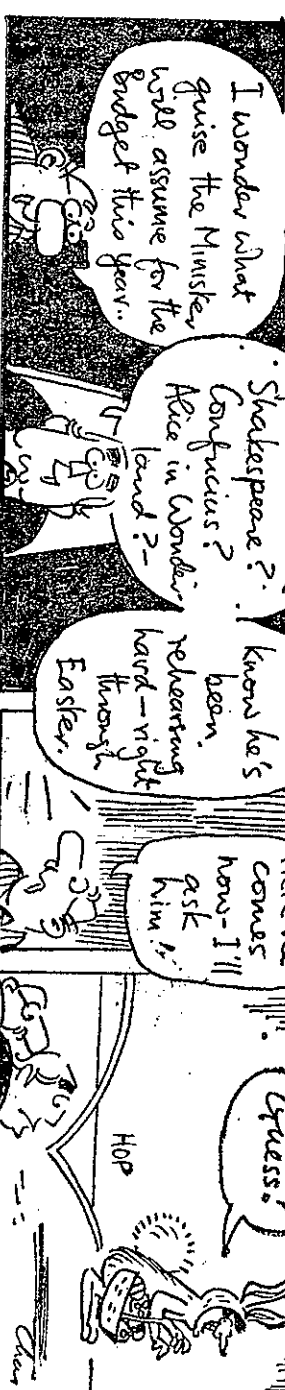 I wonder what
guise the Minister
will assume for the
budget this year..
Shakespeare?
Confucius?
Alice in Wonder
land?-
know he's
been
rehearsing
hard-right
through
Easter.
comes
now-I'll
ask
him!
Guess?
HOP